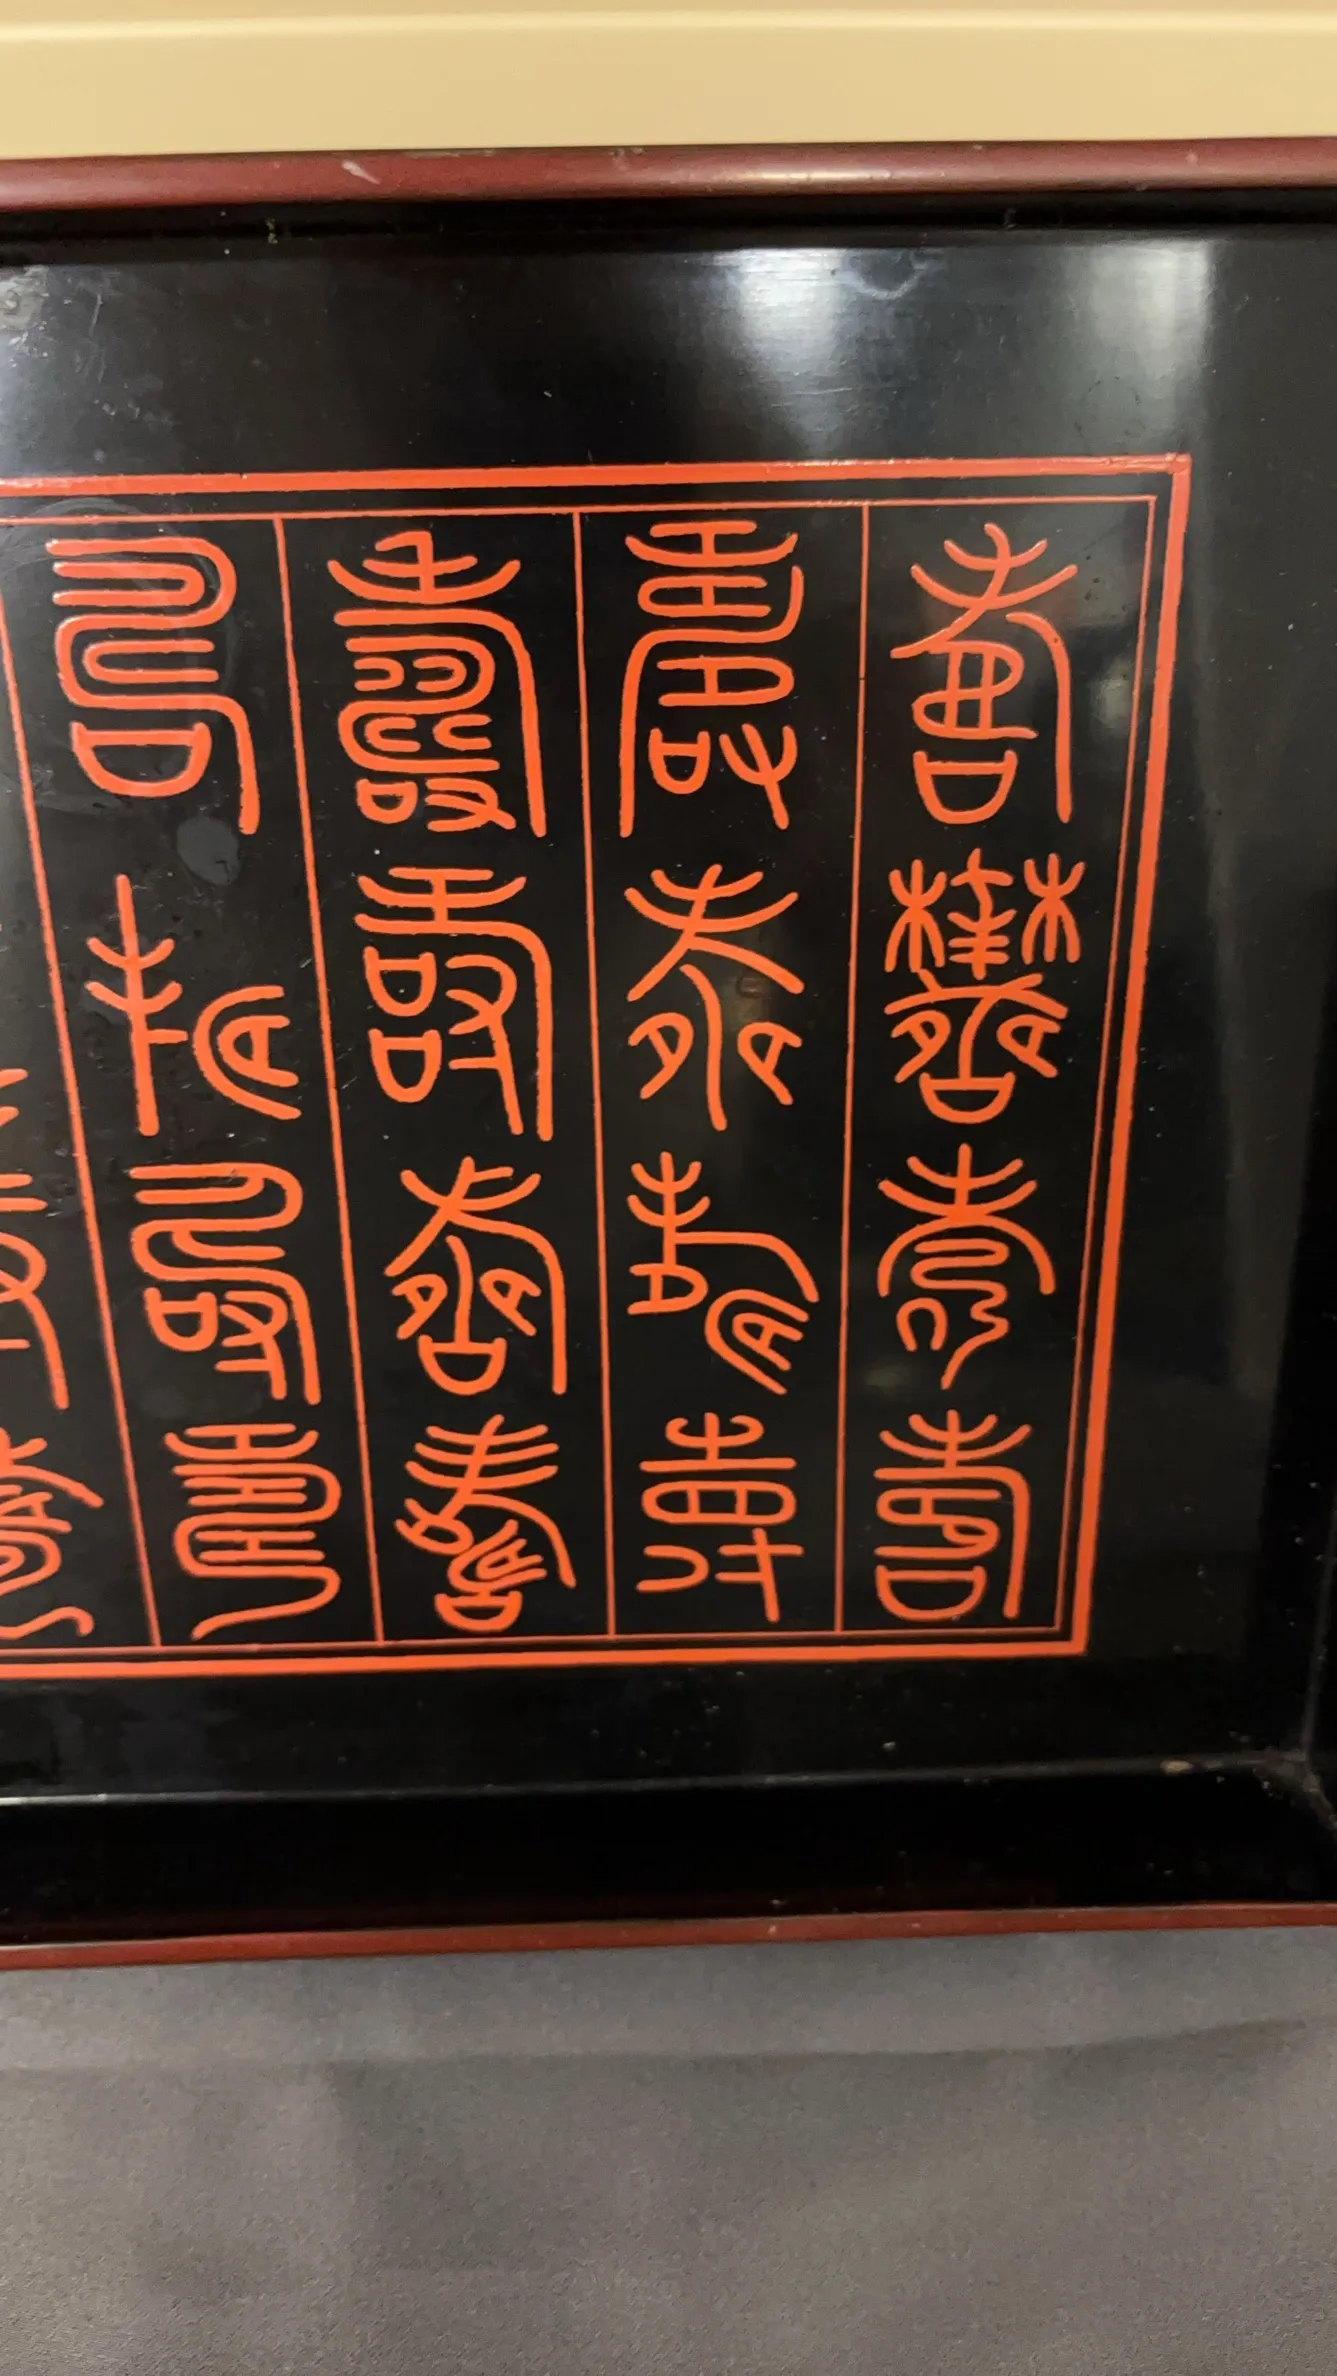 壽壽壽壽
壽壽壽壽
壽壽壽壽
壽壽壽壽